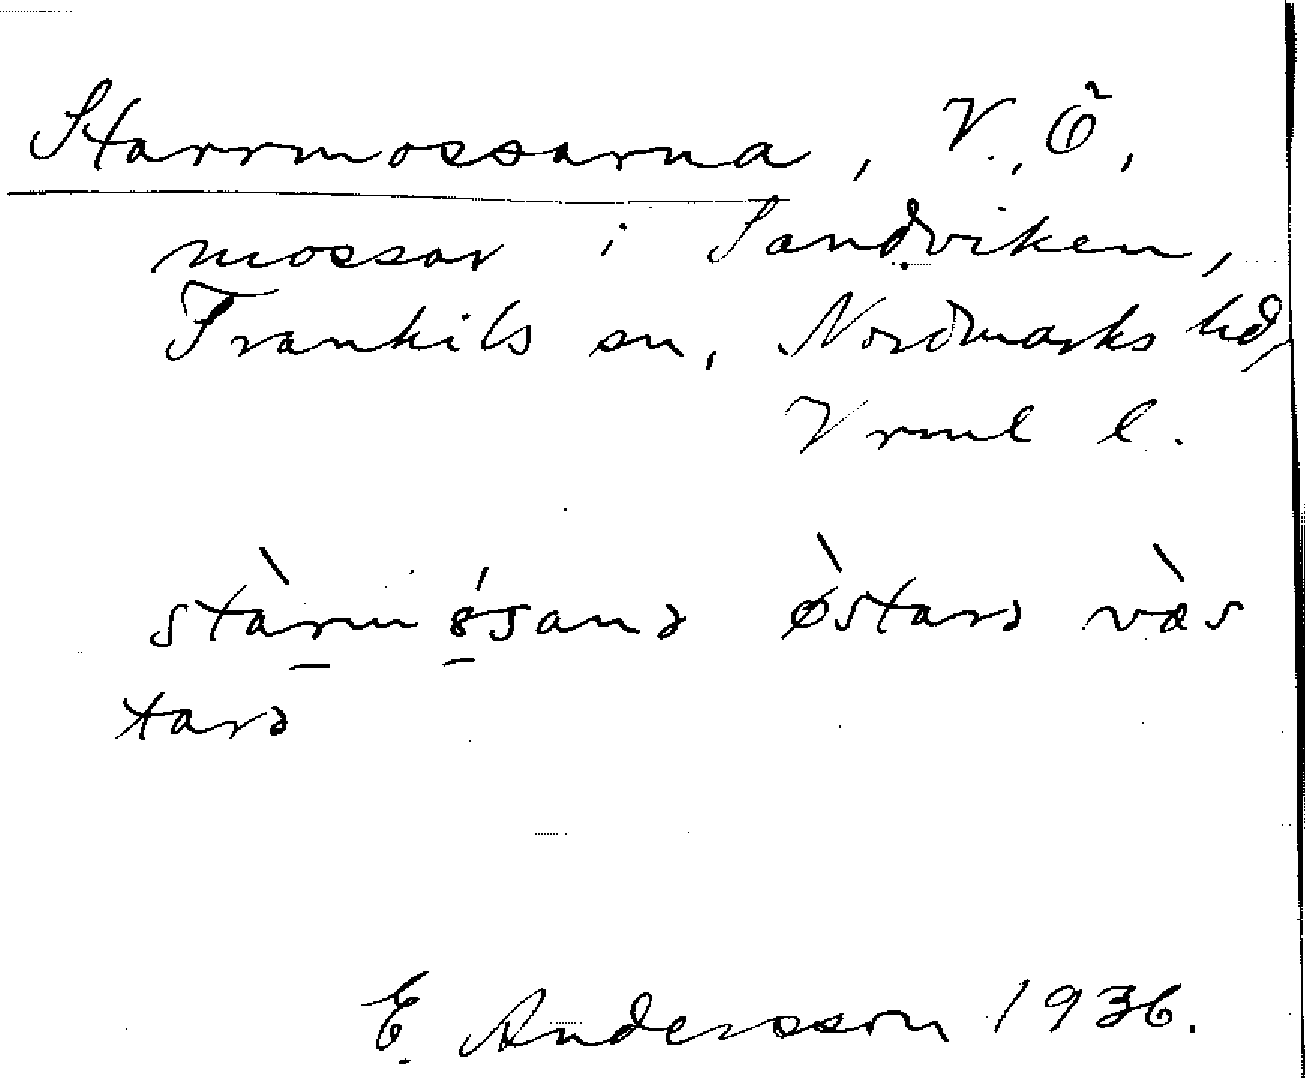 Starrmossarna, V., Ö,
mossar i Sandviken,
Trankils sn, Nordmarks hd,
Vrml l.
stàrmósanə østarə væs
tarə
E. Andersson 1936.